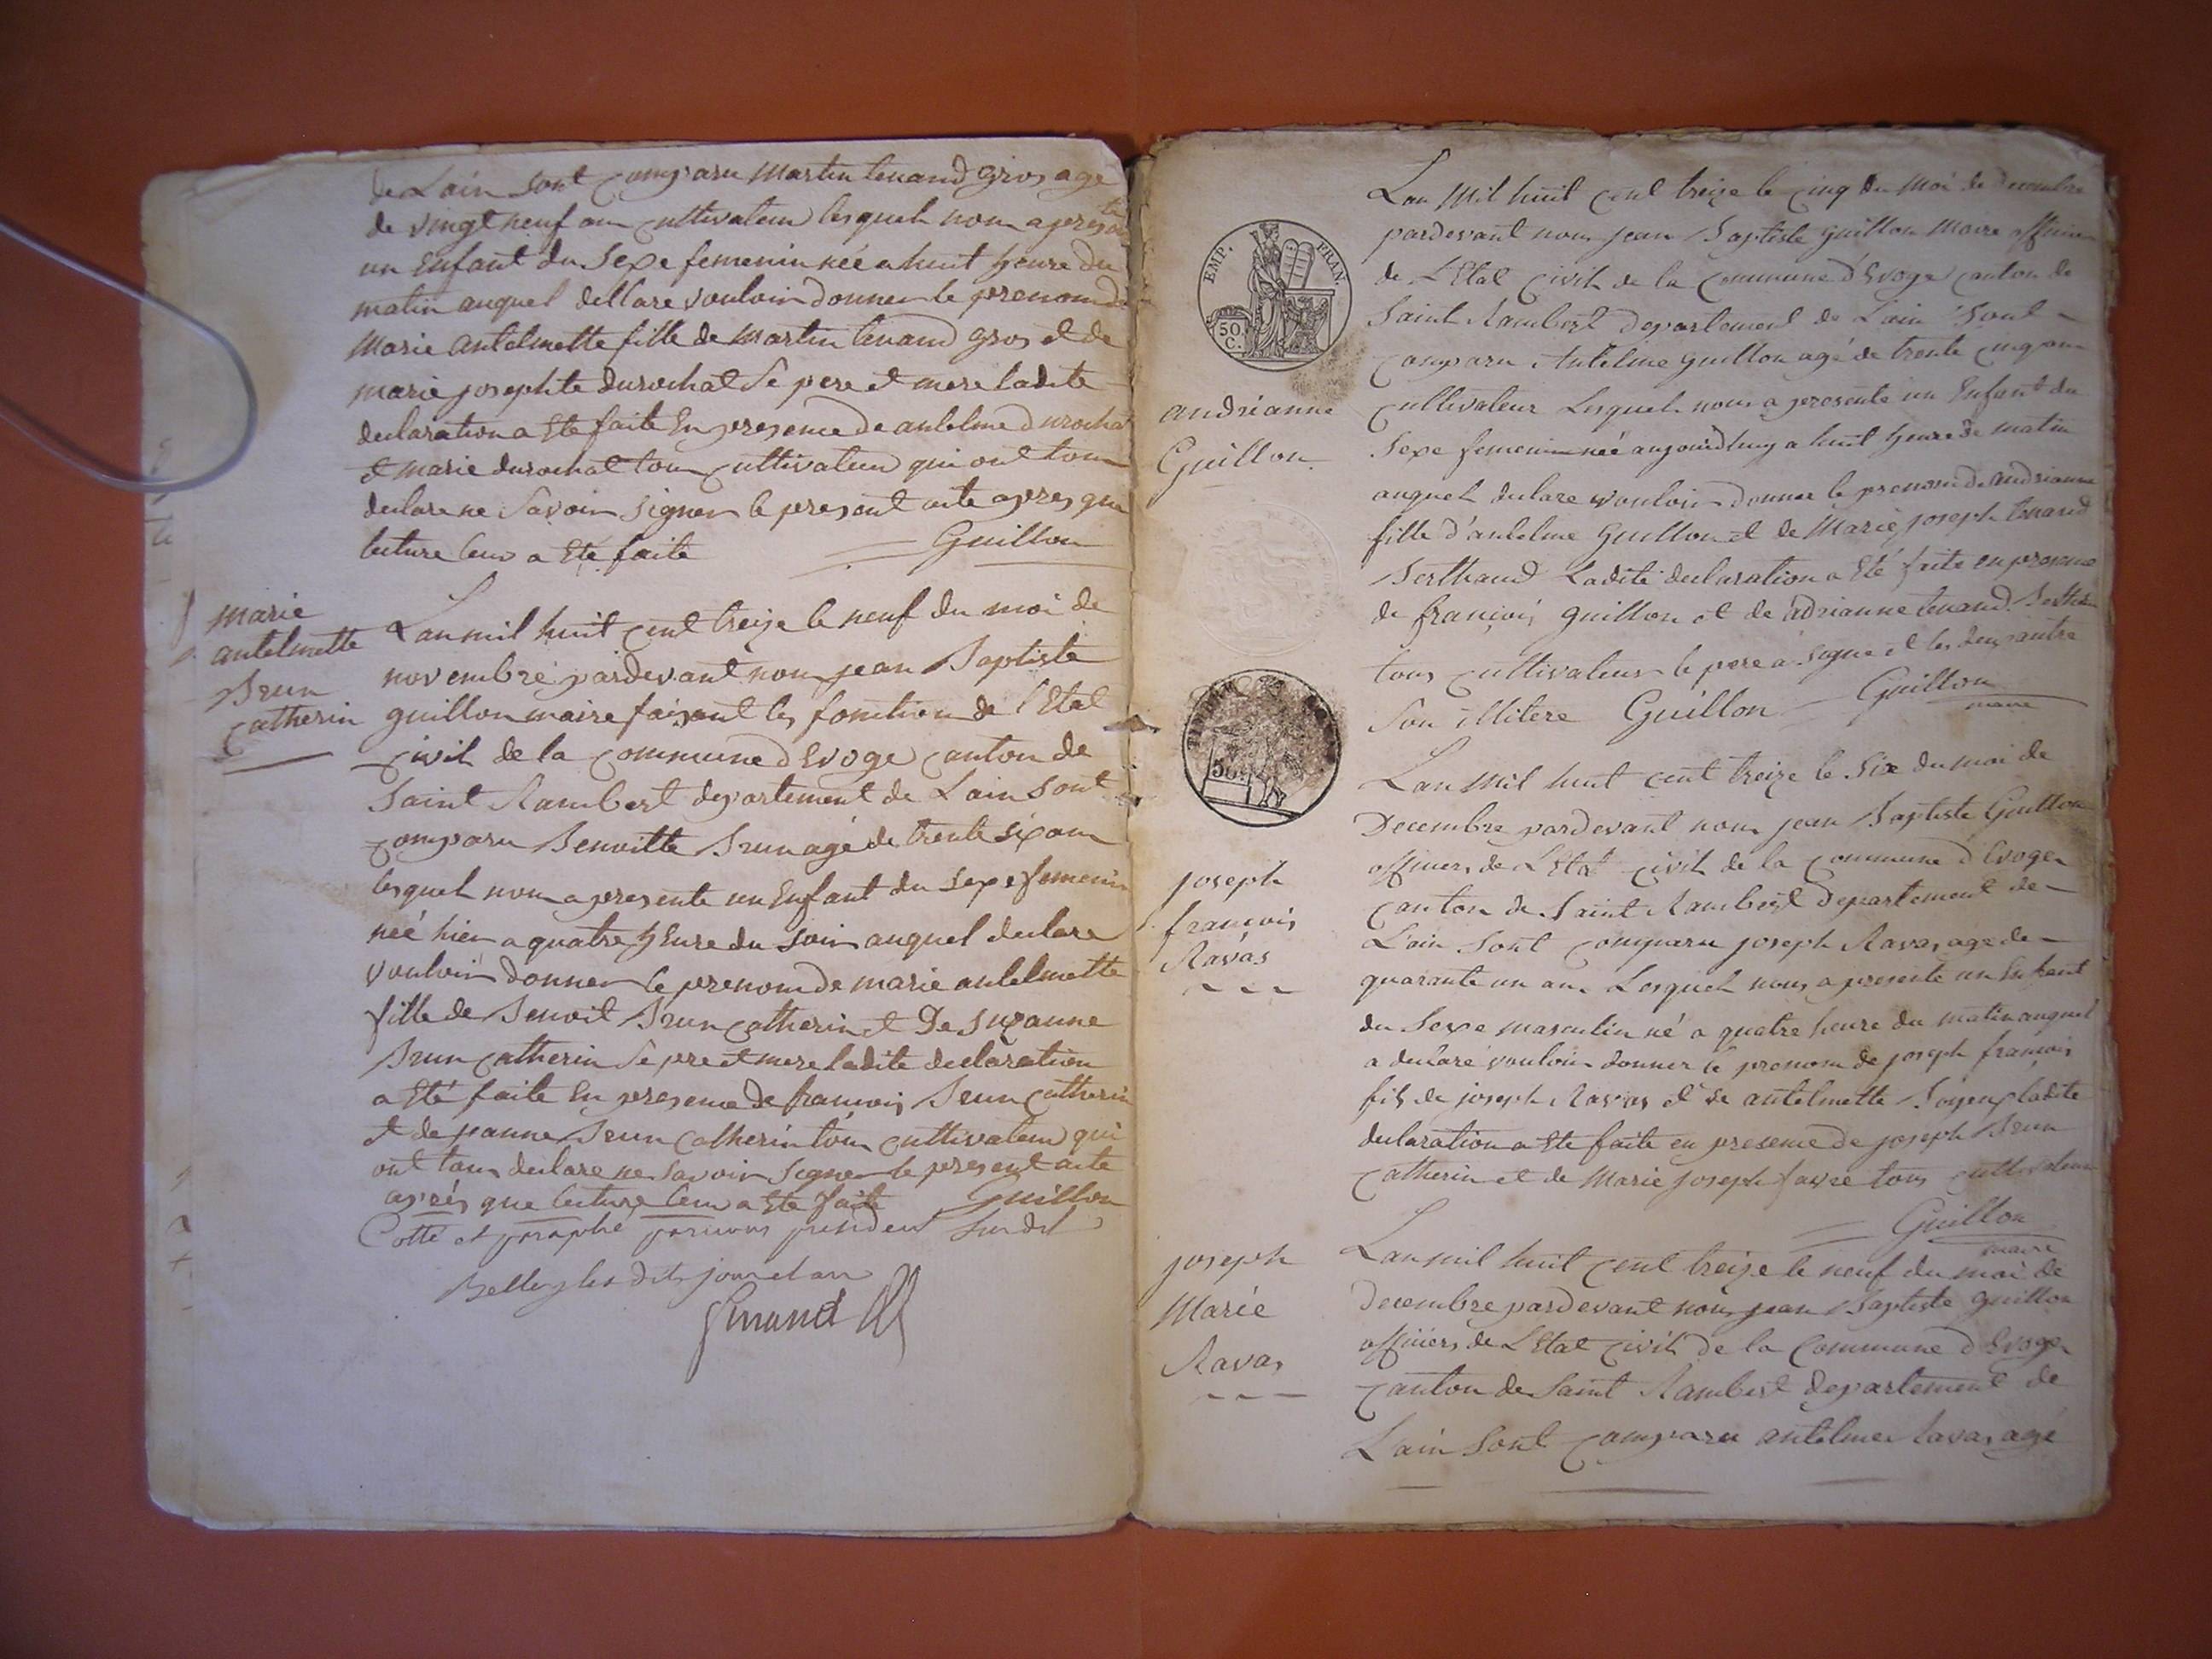 de Lain sont comparu Martin tenand gros age
de vingt neuf an cultivateur lesquel nous a presenté
un Enfant du Sexe femenin née a huit heure du
matin auquel decllare vouloir donner le prenom de
Marie antelmette fille de Martin tenand gros et de
marie josephte durochat Se pere et mere ladite
declaration a Ete faite En presence de antelme durochat
et marie durochat tous cultivateur qui ont tous
declare ne Savoir signer le present acte apres que
lecture leur a Ete faite Guillon
marie
antelmette
Brun
Catherin
Lan mil huit cent treize le neuf du moi de
novembre pardevant nous jean Baptiste
guillon maire faisant les fonction de l'Etat
civil de la commune d'Evoge canton de
Saint Rambert departement de Lain Sont
comparu Benoitte Brun agé de trente six ans
lesquel nous a presente un Enfant du sexe femenin
née hier a quatre heure du soir auquel declare
vouloir donner le prenom de marie antelmette
fille de Benoit Brun catherin et De Suzanne
Brun catherin Se pre et mere ladite declaration
a Eté faite En presence de francois Brun Catherin
et de jeanne Brun Catherin tous cultivateur qui
ont tous declare ne savoir signer le present acte
aprés que lecture leur a Ete faite Guillon
Cotté et paraphé par nous president Susdit
Belley les dits jour et an
EMP. FRAN.
50.
C.
andrianne
Guillon.
Lan Mil huit cent treize le cinq du Moi de decembre
pardevant nous jean Baptiste guillon Maire officier
de L'Etat Civil de la Commune d'Evoge canton de
Saint Rambert departement de Lain Sont
comparu Antelme guillon agé de trente cinq ans
cultivateur Lesquel nous a presente un Enfant du
Sexe femenin née aujourdhuy a huit heure de matin
auquel declare vouloir donner le prenom de andrianne
fille d'antelme guillon et de Marie joseph tenand
Berthaud Ladite declaration a Eté faite en presence
de françois guillon et de adrianne tenand
tous cultivateur le pere a Signe et les deux autre
Son illitere Guillon Guillon
maire
joseph
françois
Ravas
Lan Mil huit cent treize le Six du moi de
Decembre pardevant nous jean Baptiste Guillon
officiers de L'Etat civil de la Commune d'Evoge
canton de Saint Rambert departement de
Lain Sont comparu joseph Ravas age de
quarante un an Lesquel nous a presente un Enfant
du Sexe masculin né a quatre heure du matin auquel
a declaré vouloir donner le prenom de joseph françois
fils de joseph Ravas et de antelmette ladite
declaration a Ete faite en presence de joseph Brun
Catherin et de Marie joseph favre tous cultivateur
Guillon
maire
joseph
Marie
Ravas
Lan mil huit cent treize le neuf du moi de
decembre pardevant nous jean Baptiste guillon
officiers de L'Etat civil de la Commune d'Evoge
canton de Saint Rambert departement de
Lain Sont comparu antelme Ravas agé